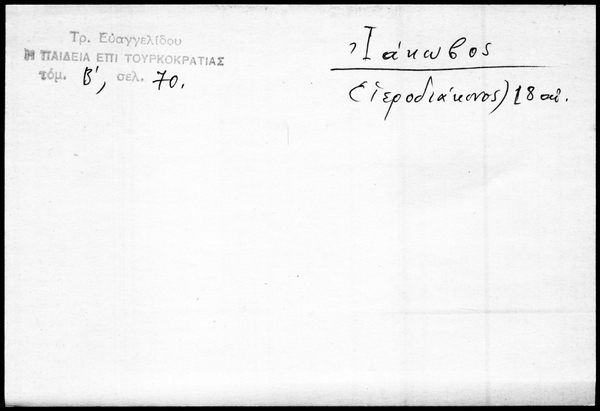 Τρ. Εὐαγγελίδου
Η ΠΑΙΔΕΙΑ ΕΠΙ ΤΟΥΡΚΟΚΡΑΤΙΑΣ
τόμ. Β', σελ. 70.
Ἰάκωβος
(ἱεροδιάκονος) 18 αἰ.